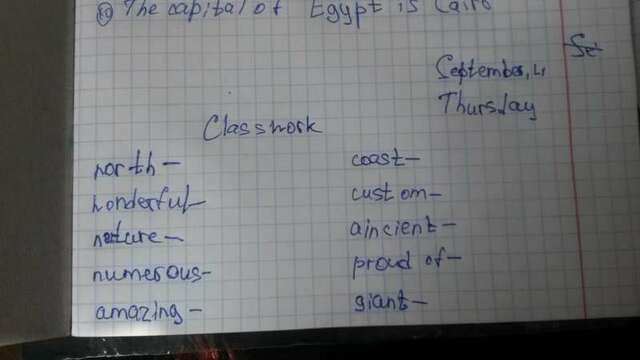 ⑩ The capital of Egypt is Cairo
September, 4
Thursday
Classwork
north –
wonderful –
nature –
numerous –
amazing –
coast –
custom –
aincient –
proud of –
giant –